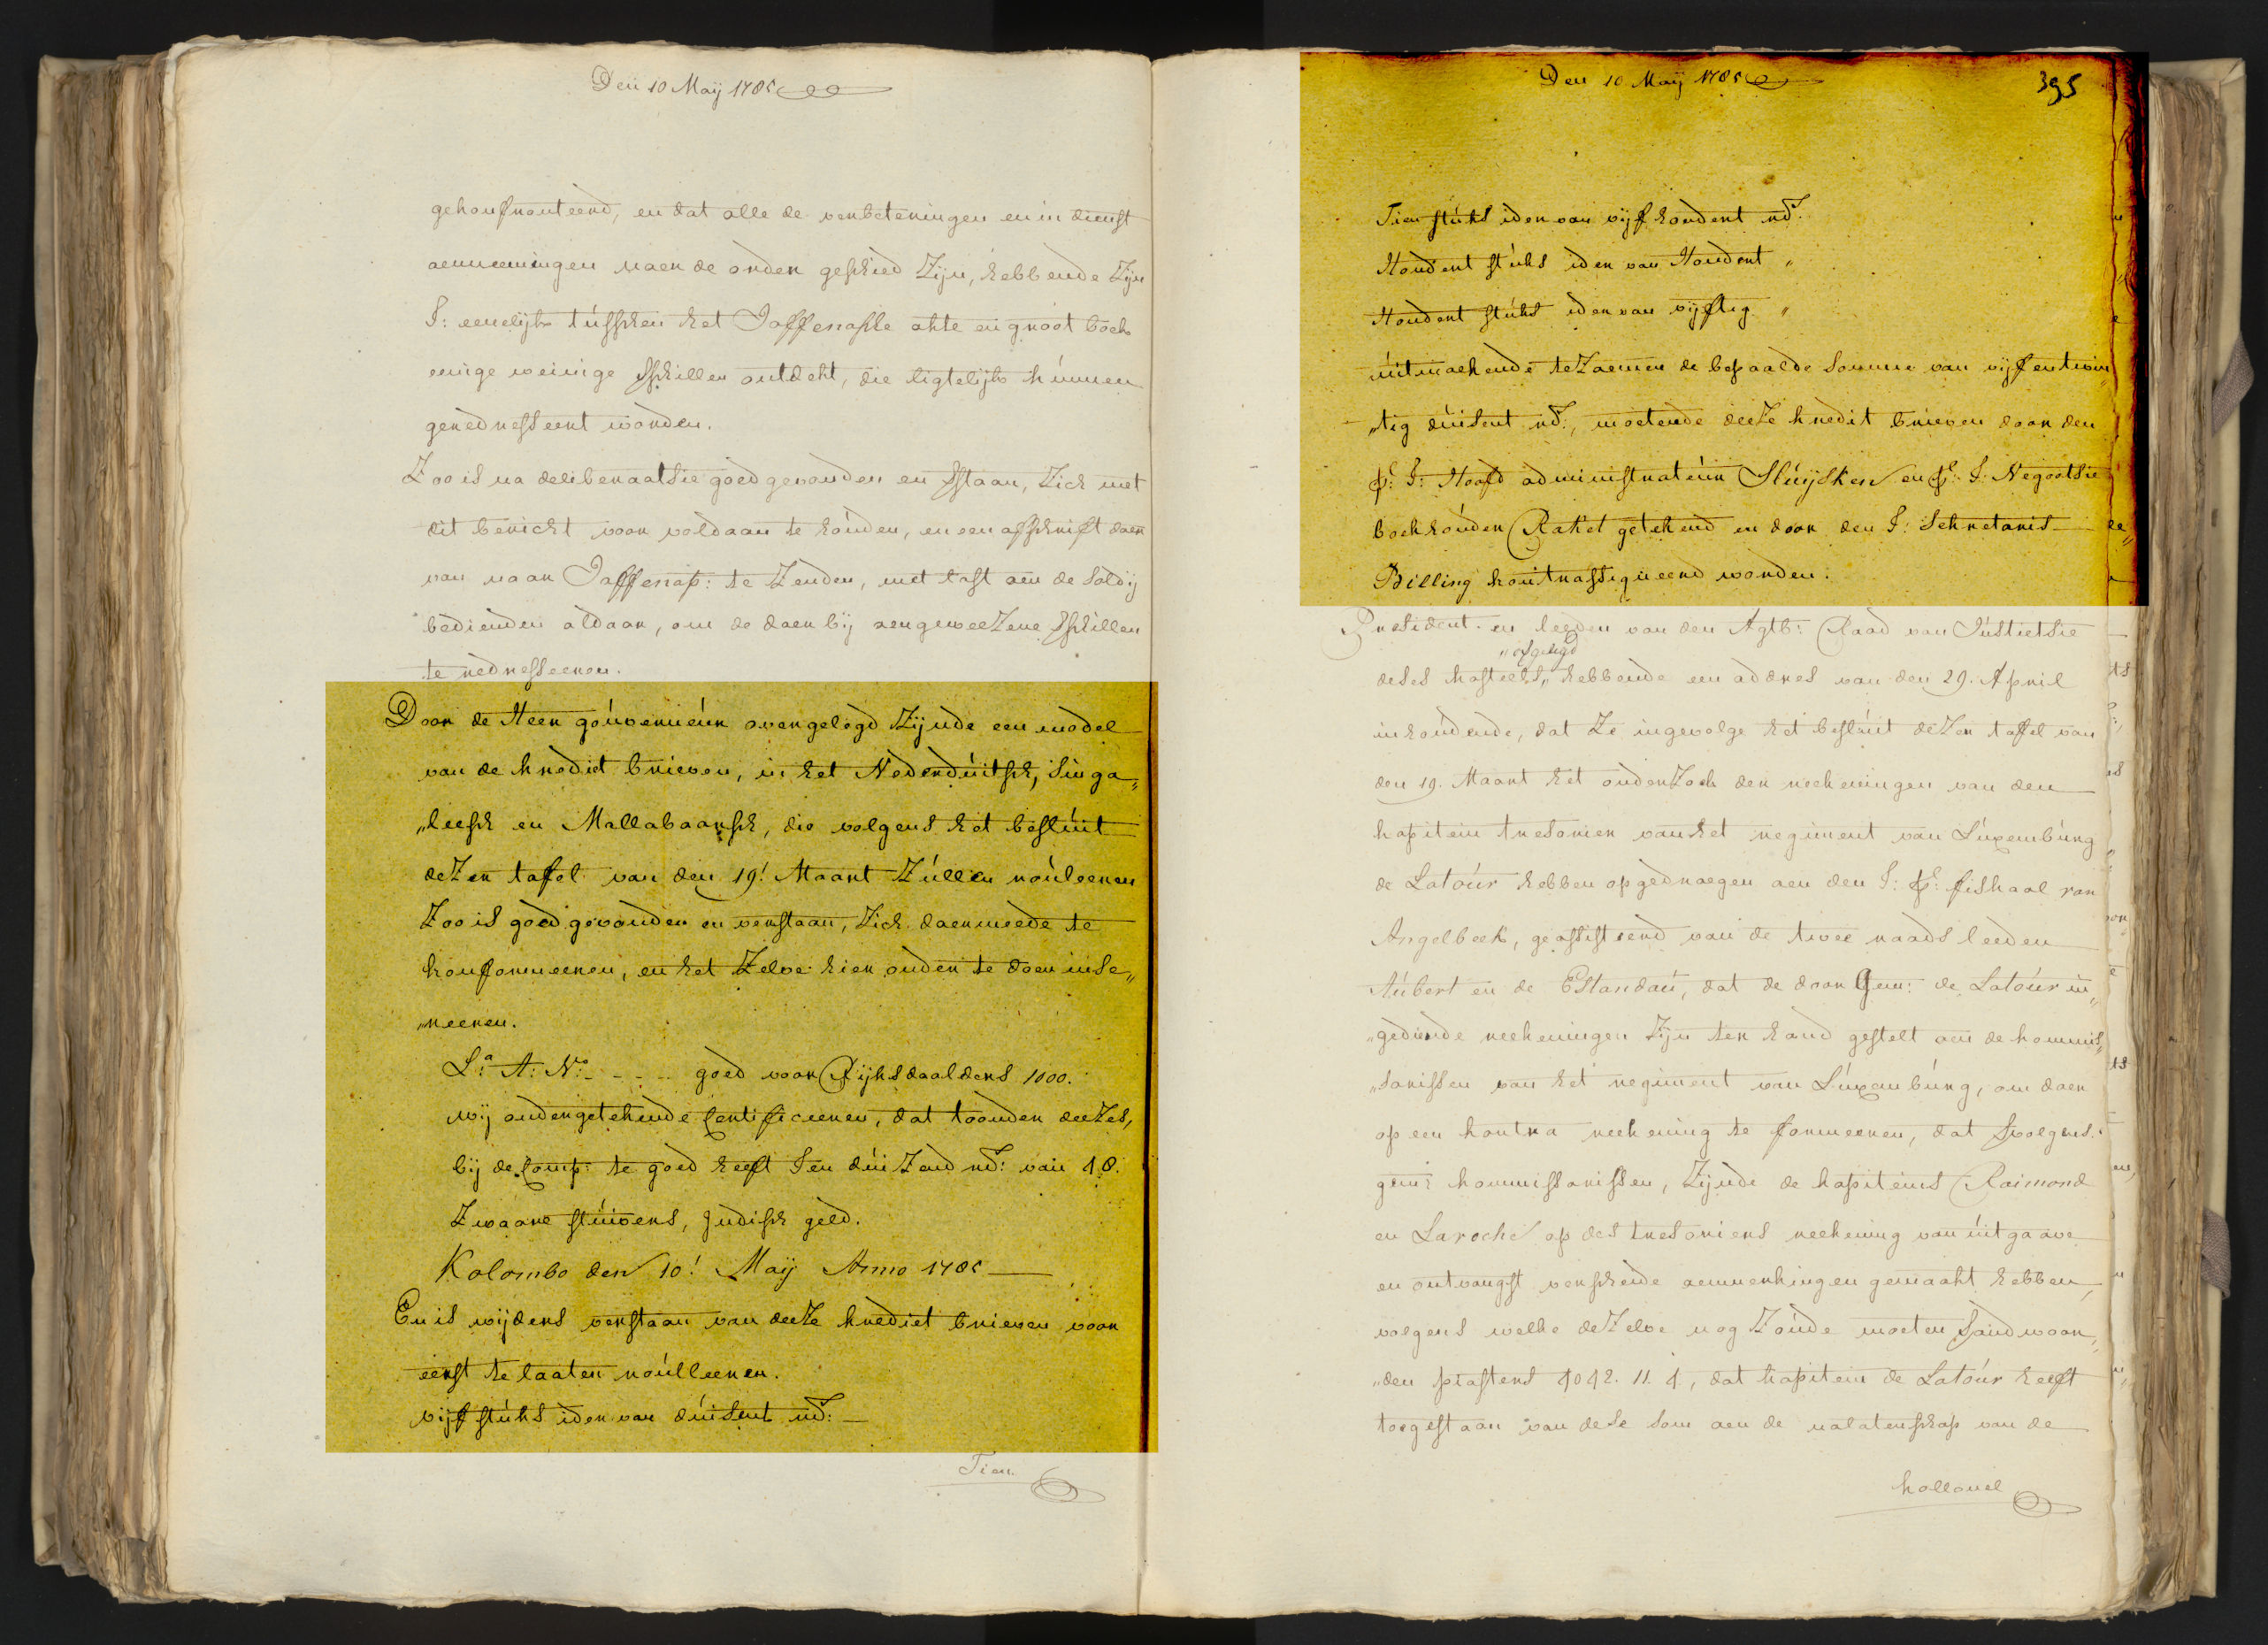 Den 10 Maij 1785
gekonfronteerd, en dat alle de verbeteringen en in dienst
aenneemingen naer de order geschied Zijn, hebbende Zijn
E: eenelijk tússchen het Jaffenasse akte en groot boek
eenige weinige Schillen ontdekt, die ligtelijk kúnnen
geredresseert worden.
Zoo is na deliberaatsie goed gevonden en Verstaan, Zich met
dit bericht voor voldaan te hoúden, en een afschrift daer
van naar Jaffenap: te Zenden, met last aen de Soldij
bedienden aldaar, om de daer bij aengeweezene Schillen
te redresseeren.
Door de Heer goúverneúr overgelegd Zijnde een model
van de krediet brieven, in het Nederdúitsch, Singa„
„leesch en Mallabaarsch, die volgens het beslúit
dezer tafel van den 19! Maart Zúllen roúleeren
Zoo is goed gevonden en verstaan, Zich daermeede te
konformeeren, en het Zelve hier onder te doen inse„
„reeren.
L:a A: No: - - - - goed voor Rijksdaalders 1000.
wij ondergetekende Certificeeren, dat toonder deezes,
bij de Comp: te goed heeft Een dúizend rd:s van 48.
Zwaare stúivers, Indisch geld.
Kolombo den 10! Maij Anno 1785
En is wijders verstaan van deeze krediet brieven voor
eerst te laaten roúlleeren.
vijf stúks ider van dúisent rd:s
Tien
Den 10 Maij 1785
395
Tien stúks ider van vijf hondert rd:s
Hondert stúks ider van Hondert „
Hondert stúks ider van vijftig „
úitmaekende te Zaemen de bepaalde Somme van vijfentwin„
„tig dúisent rd:s, moetende deeze kredit brieven door den
p:l E: Hoofd administrateúr Slúijsken en p:l E: Negootsie
boekhoúder Raket getekend en door den E: Sekretaris
Billing kontrasigneerd worden.
President en leeden van den Agtb: Raad van Jústietsie
„ofgelegd
deses kasteels„ hebbende een addres van den 29. April
inhoúdende, dat Ze ingevolge het beslúit dezer tafel van
den 19. Maart het onderzoek der reekeningen van den
kapitein tresorier van het regiment van Lúxembúrg
de Latoúr hebben opgedraegen aen den E: p:l fiskaal van
Angelbeek, geassisteerd van de twee raads leeden
Aúbert en de Estandaú, dat de door Gem: de Latoúr in„
„gediende reekeningen Zijn ter hand gestelt aen de kommis„
„sarissen van het regiment van Lúxembúrg, om daer
op een kontra reekening te formeeren, dat volgens
gem: kommissarissen, Zijnde de kapiteins Raimond
en Laroche op des tresoriers reekening van úitgaave
en ontvangst verscheide aenmerkingen gemaakt hebben,
volgens welke dezelve nog Zoúde moeten goed woor„
„den piasters 4042. 11. 4, dat kapitein de Latoúr heeft
toegestaan van dese som aen de nalatenschap van de
kollonel